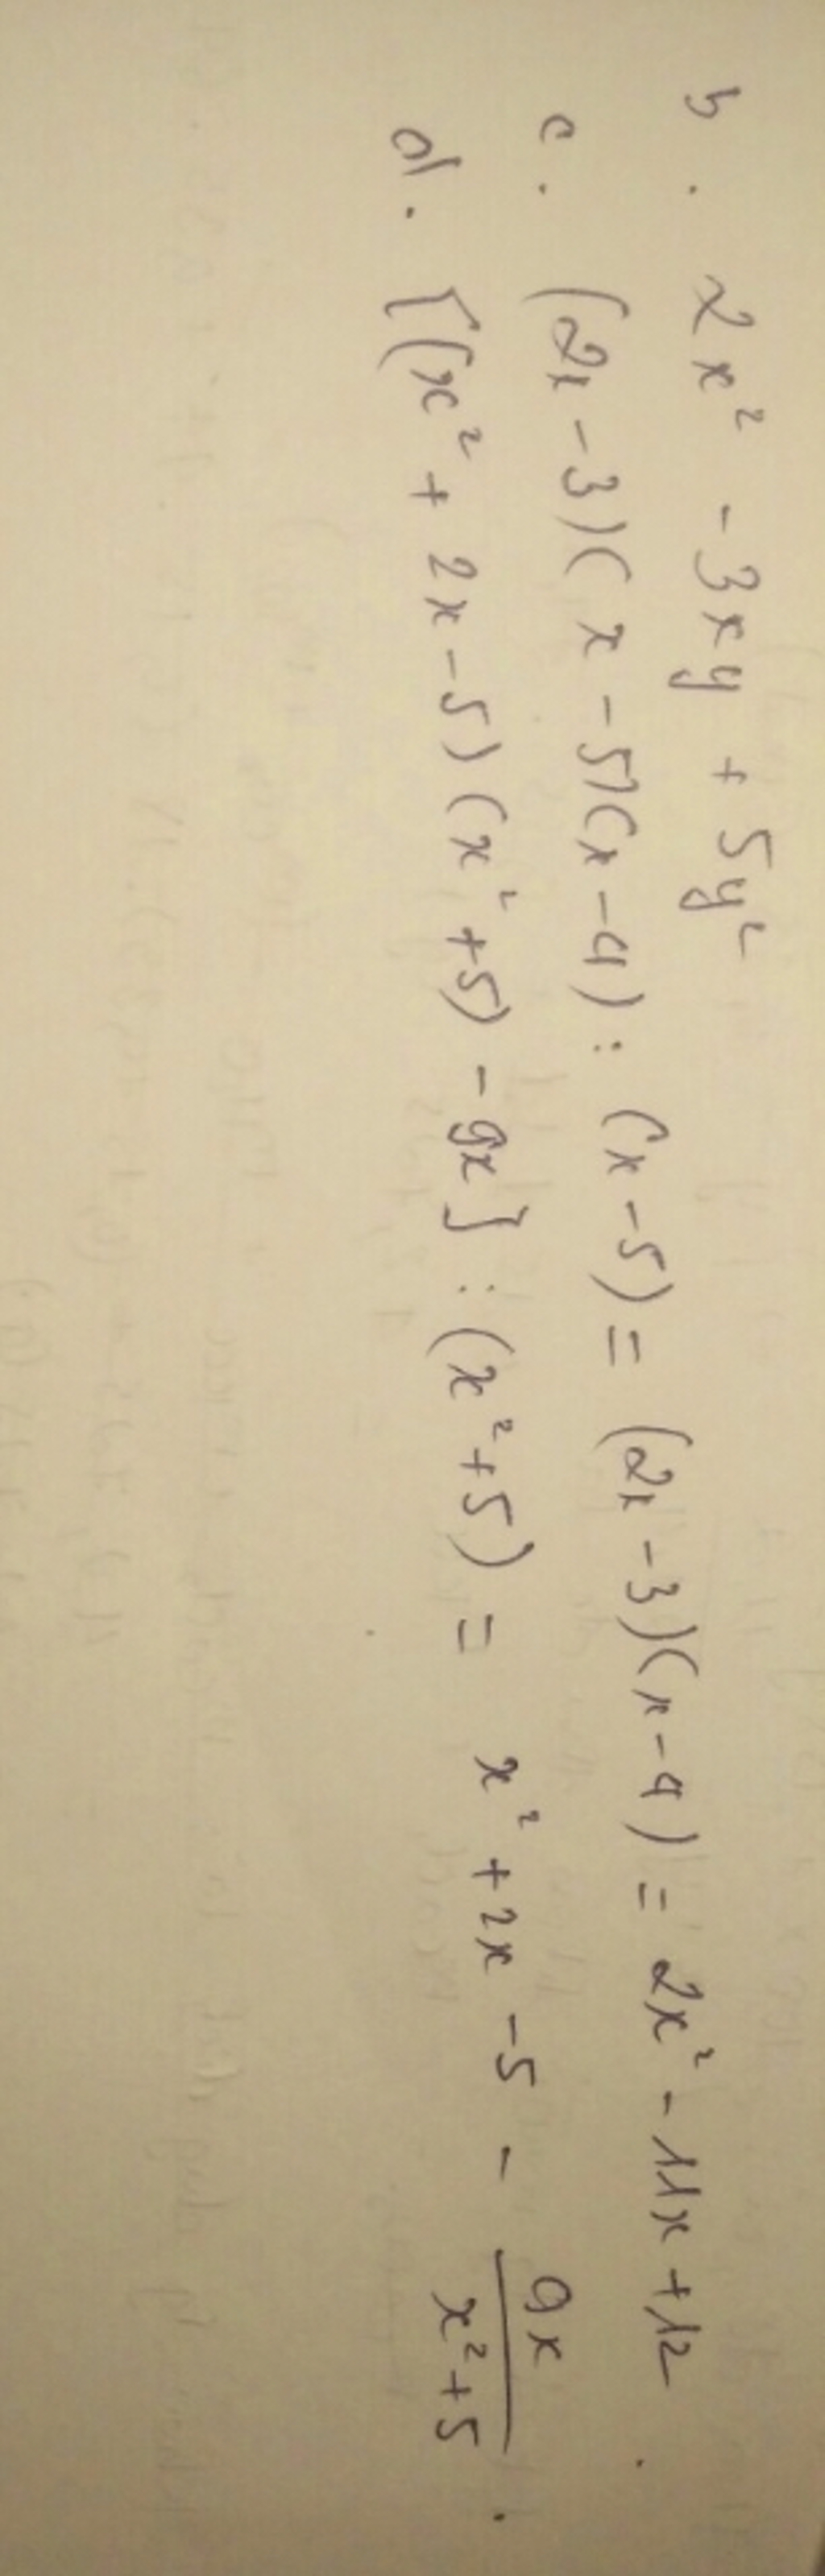 b. 2x² - 3xy + 5y²
c. (2x - 3)(x - 5)(x - 4) : (x - 5) = (2x - 3)(x - 4) = 2x² - 11x + 12.
d. [(x² + 2x - 5)(x² + 5) - 9x] : (x² + 5) = x² + 2x - 5 - 9x/(x² + 5).